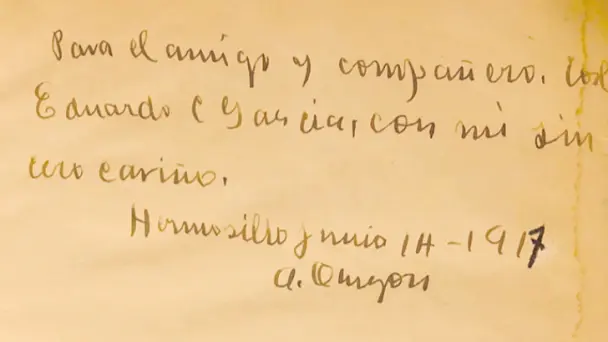 Para el amigo y compañero, Col
Eduardo C García, con mi sin
cero cariño.
Hermosillo Junio 14-1917
A. Obregón